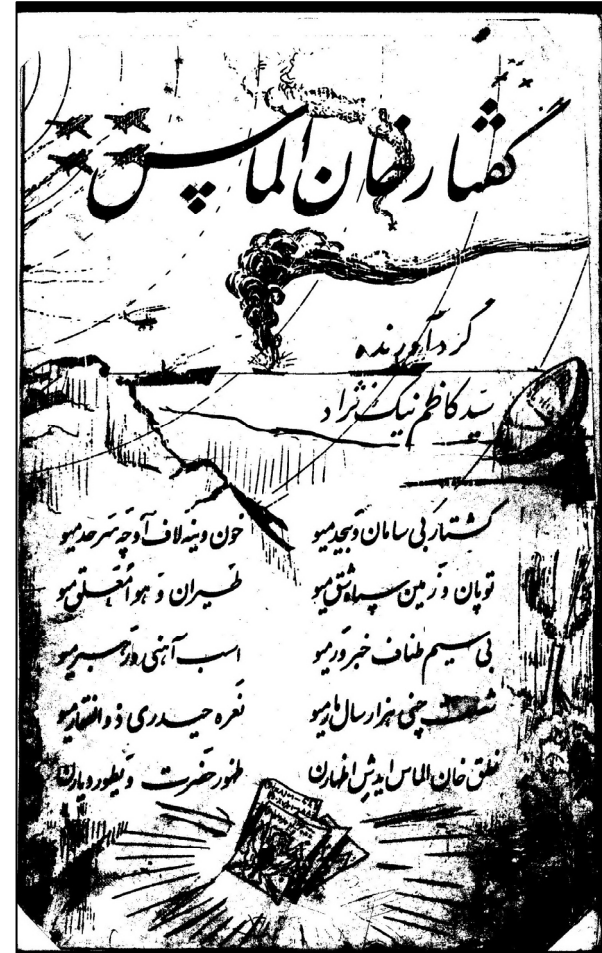 گفتار خان الماس
گردآورنده
سید کاظم نیک نژاد
کشتار بی سامان و بیحد میو خون وینه لاف آو چه سرحد میو
توپان و زمین سپاه شق میو طیران و هوا معلق میو
بی سیم طناف خبر ور میو اسب آهنی رو میو
شصت چنی هزار سال مار میو نعره حیدری ذوالفقار میو
نطق خان الماس ایدیش اظهارن ظهور حضرت